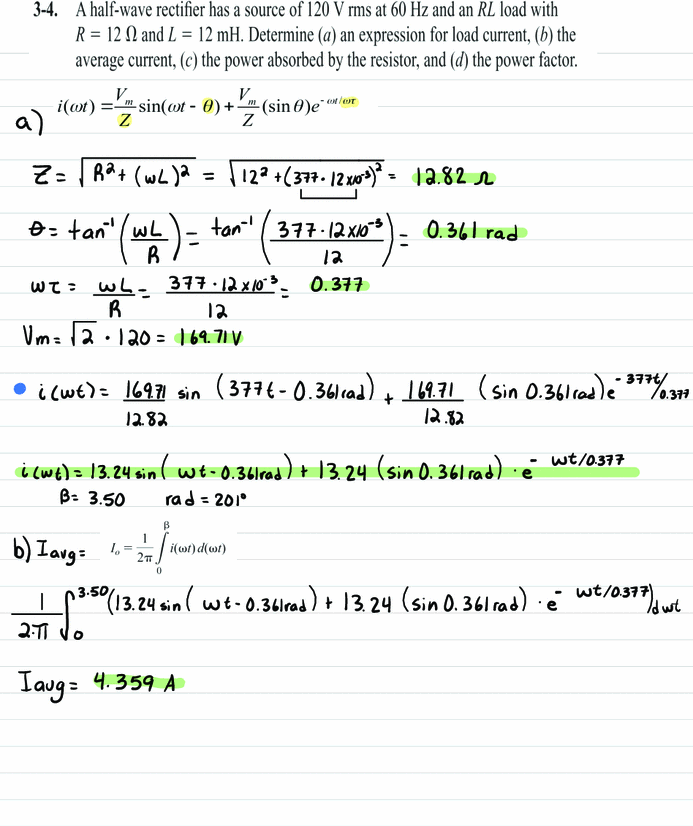 3-4. A half-wave rectifier has a source of 120 V rms at 60 Hz and an RL load with
R = 12 Ω and L = 12 mH. Determine (a) an expression for load current, (b) the
average current, (c) the power absorbed by the resistor, and (d) the power factor.
a) i(ωt) = V_m/Z sin(ωt - θ) + V_m/Z (sin θ)e^(-ωt/ωτ)
Z = √(R² + (ωL)²) = √(12² + (377 · 12x10⁻³)²) = 12.82 Ω
θ = tan⁻¹(ωL/R) = tan⁻¹(377 · 12x10⁻³/12) = 0.361 rad
ωτ = ωL/R = 377 · 12x10⁻³/12 = 0.377
Vm = √2 · 120 = 169.71 V
i(ωt) = 169.71/12.82 sin (377t - 0.361 rad) + 169.71/12.82 (sin 0.361 rad) e^(-377t/0.377)
i(ωt) = 13.24 sin( ωt - 0.361 rad) + 13.24 (sin 0.361 rad) · e^(- ωt/0.377)
β = 3.50 rad = 201°
b) Iavg = I_o = 1/2π ∫₀^β i(ωt) d(ωt)
1/2·π ∫₀^3.50 (13.24 sin( ωt - 0.361 rad) + 13.24 (sin 0.361 rad) · e^(- ωt/0.377)) dωt
Iavg = 4.359 A